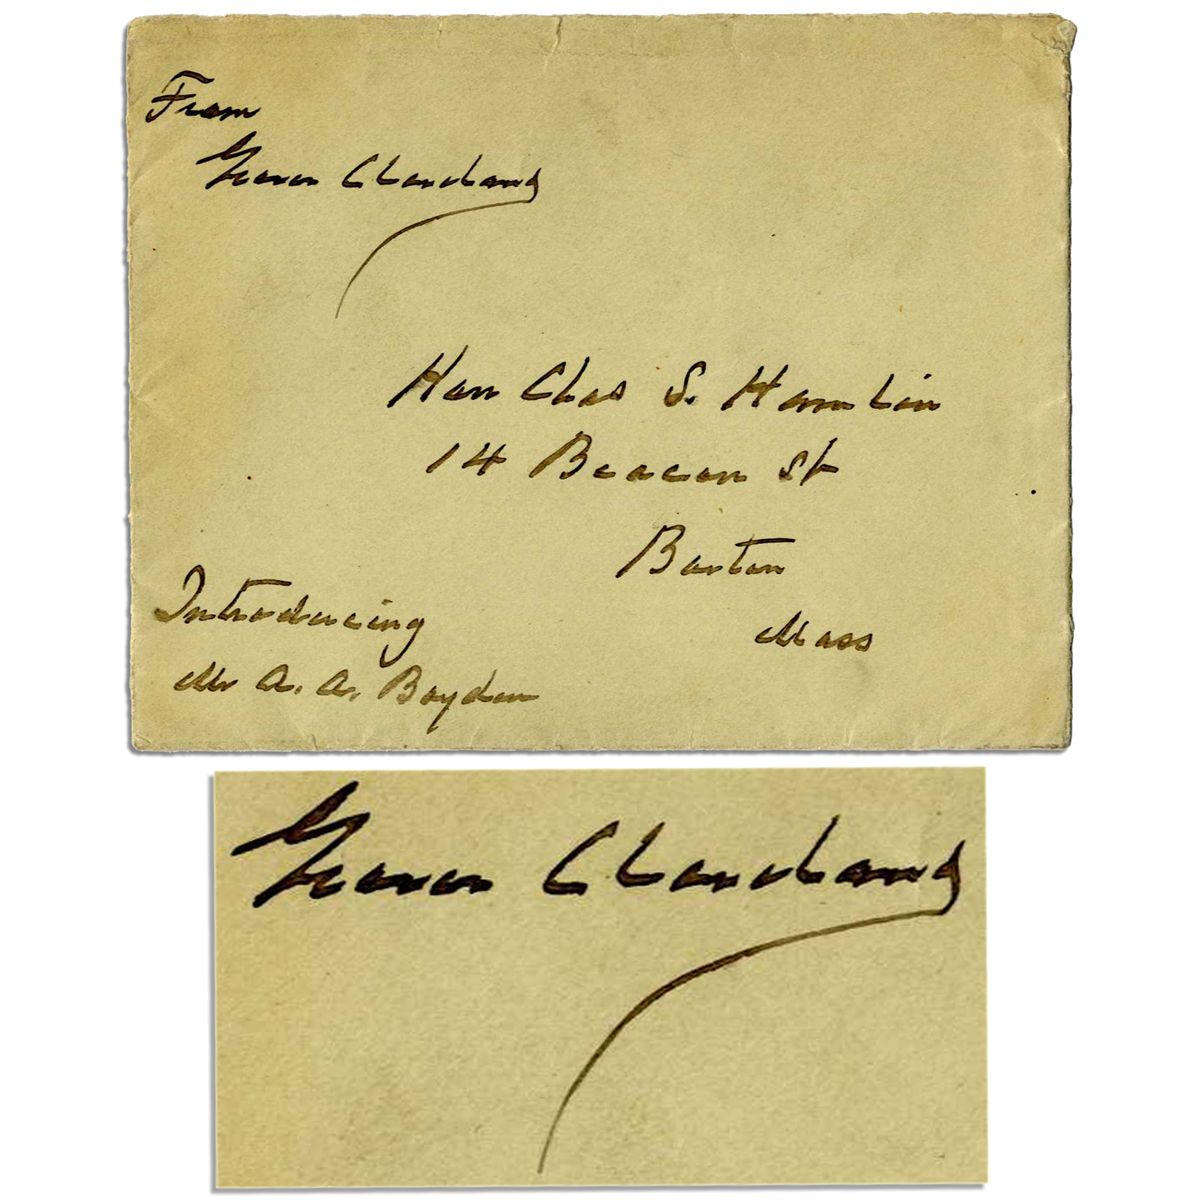 From
Grover Cleveland
Hon Chas S. Hamlin
14 Beacon St
Boston
Mass
Introducing
Mr A. A. Boyden
Grover Cleveland